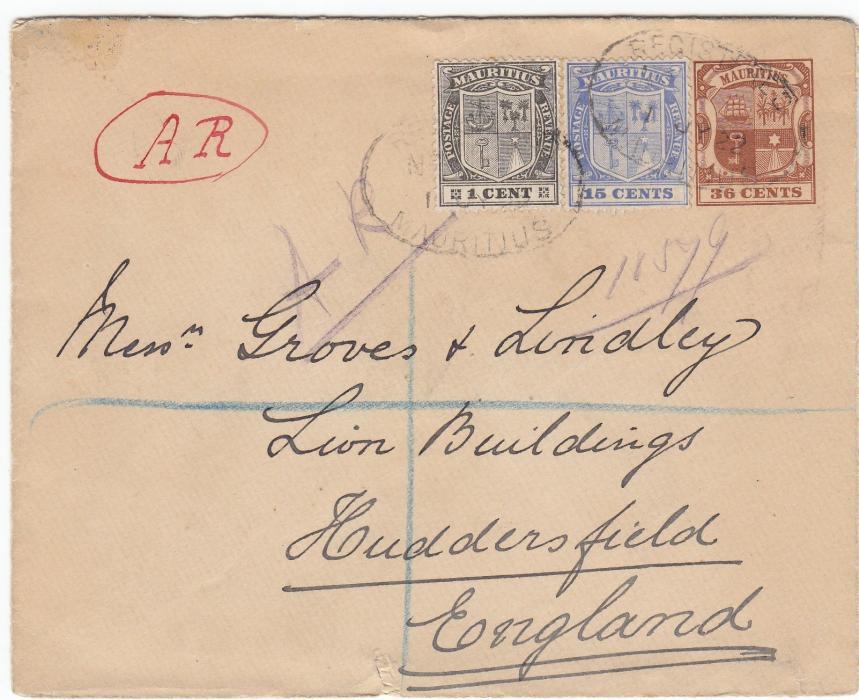 AR
MAURITIUS
POSTAGE
REVENUE
1 CENT
MAURITIUS
POSTAGE
REVENUE
15 CENTS
MAURITIUS
36 CENTS
MAURITIUS
AR
11579
Messrs Groves & Lindley
Lion Buildings
Huddersfield
England